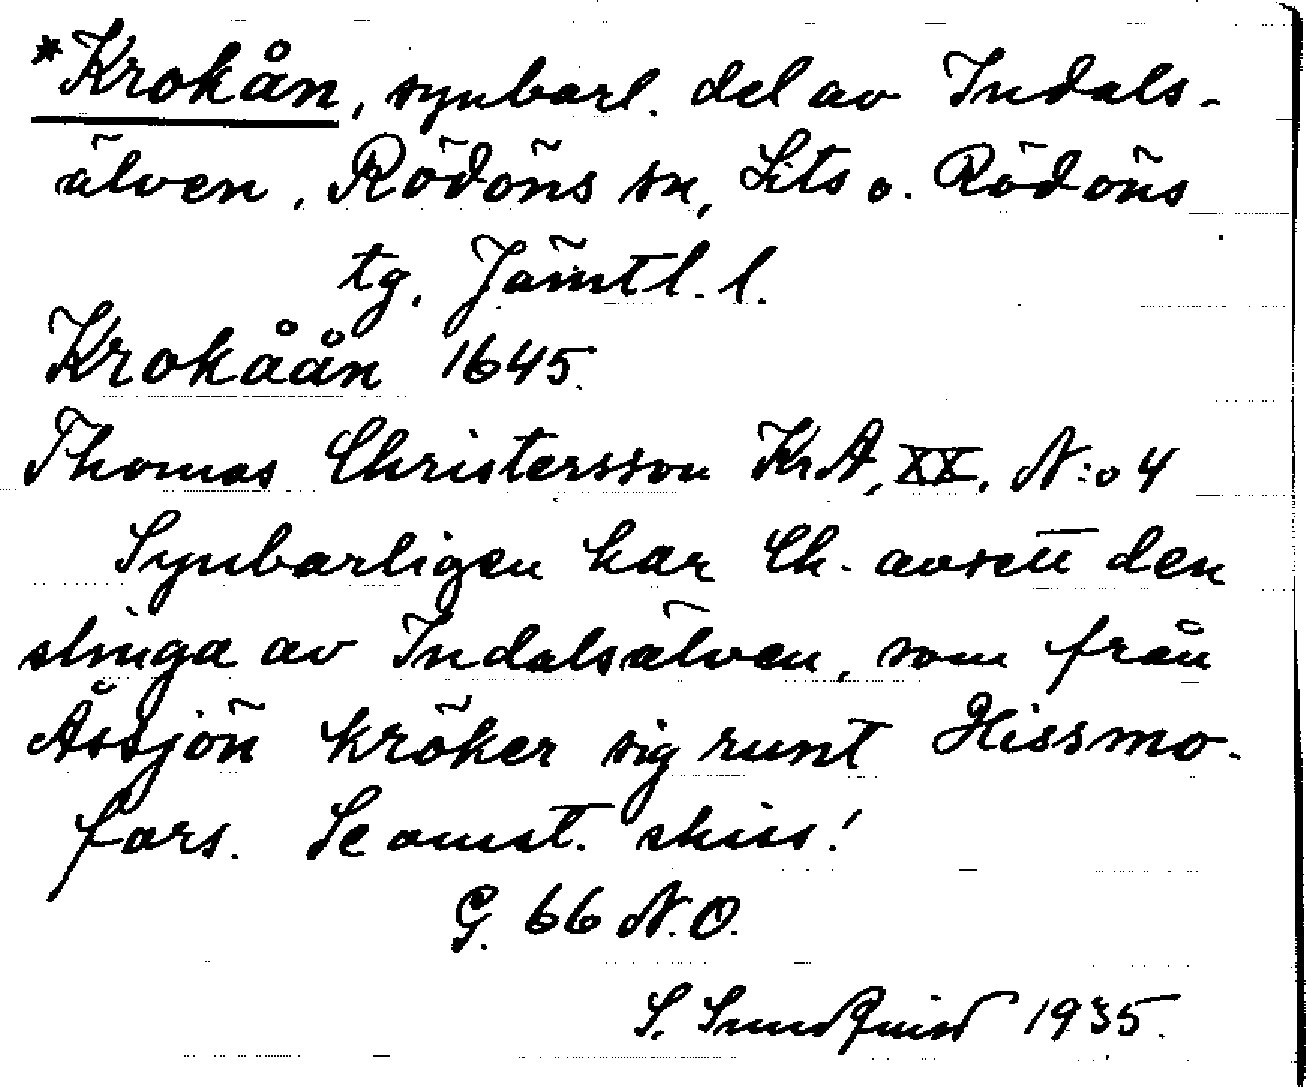 *Krokån, synbarl. del av Indals-
älven, Rödöns sn, Lits o. Rödöns
tg. Jämtl. l.
Krokåån 1645.
Thomas Christersson KrA, XX, N:o 4
Synbarligen har Ch. avsett den
slinga av Indalsälven, som från
Åssjön kröker sig runt Hissmo-
fors. Se omst. skiss!
G. 66 N.O.
S. Sundquist 1935.